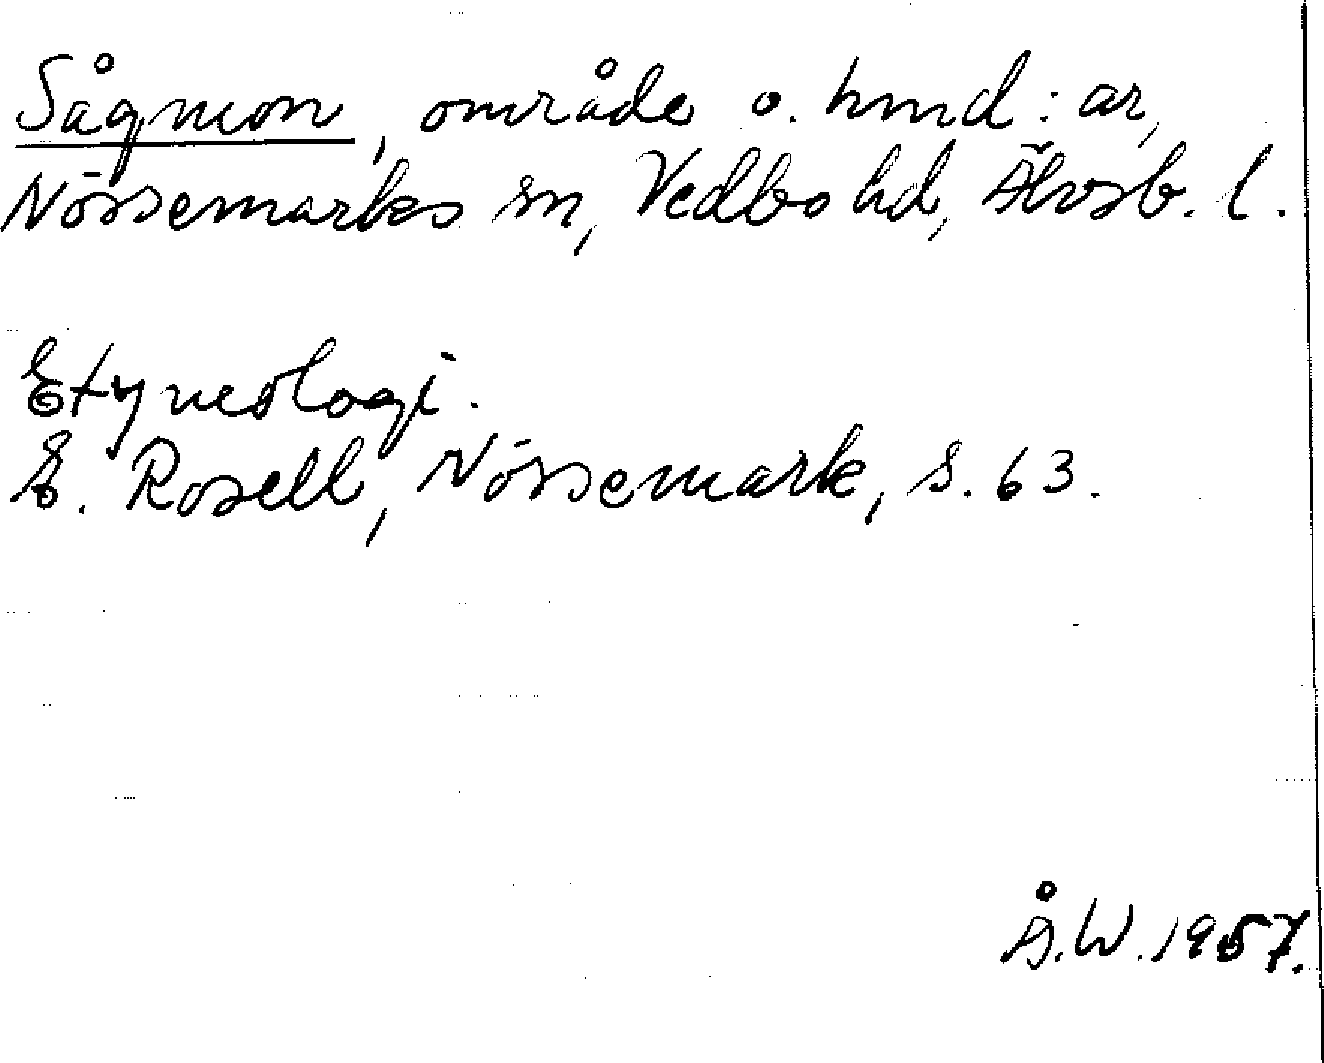 Sågmon, område o. hmd:ar,
Nössemarks sn, Vedbo hd, Älvsb. l.
Etymologi.
E. Rosell, Nössemark, s. 63.
Å.W. 1957.